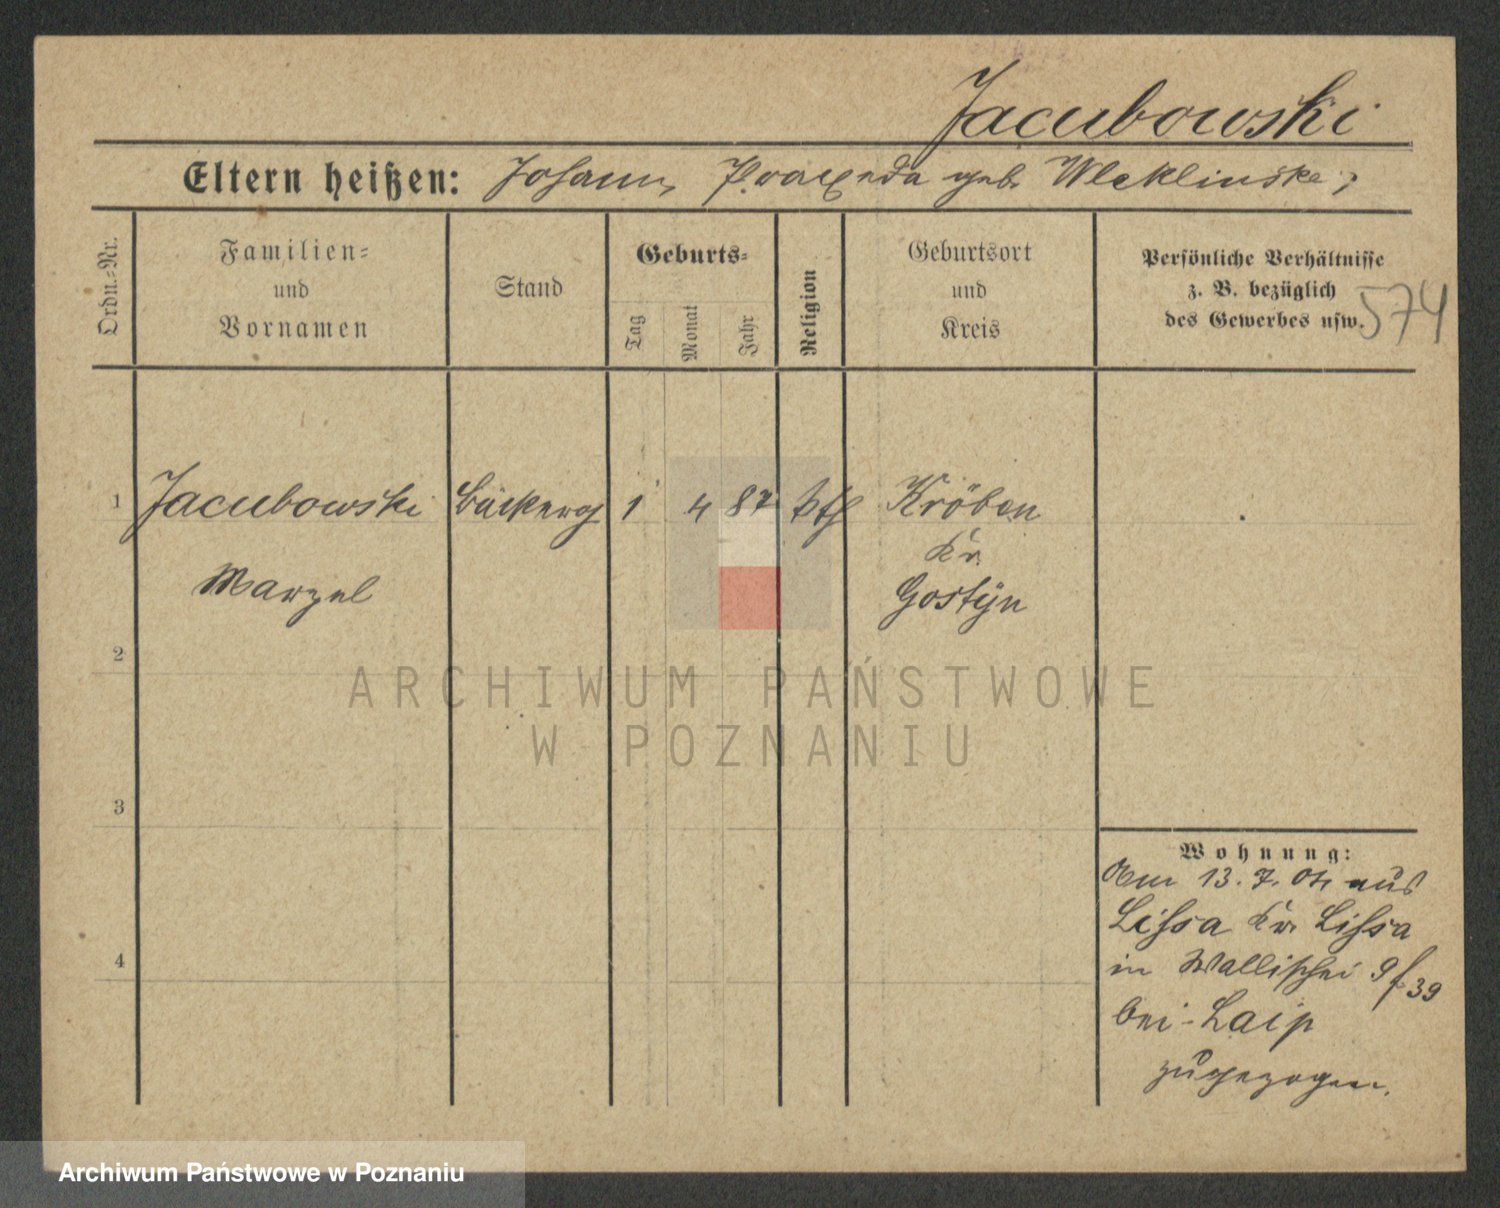 Jacubowski
Eltern heißen: Johann, Praxeda geb. Wleklinska;
Ordn.-Nr.
Familien-
und
Vornamen
Stand
Geburts-
Tag
Monat
Jahr
Religion
Geburtsort
und
Kreis
Persönliche Verhältnisse
z. B. bezüglich
des Gewerbes usw.
574
1 Jacubowski Bäckerg 1 4 87 kth Kröben
Kr.
Marzel Gostÿn
2
ARCHIWUM PAŃSTWOWE
W POZNANIU
3
Wohnung:
Am 13. 7. aus
Lissa Kr. Lissa
4
in Wallischei 9 39
bei
zugezogen.
Archiwum Państwowe w Poznaniu